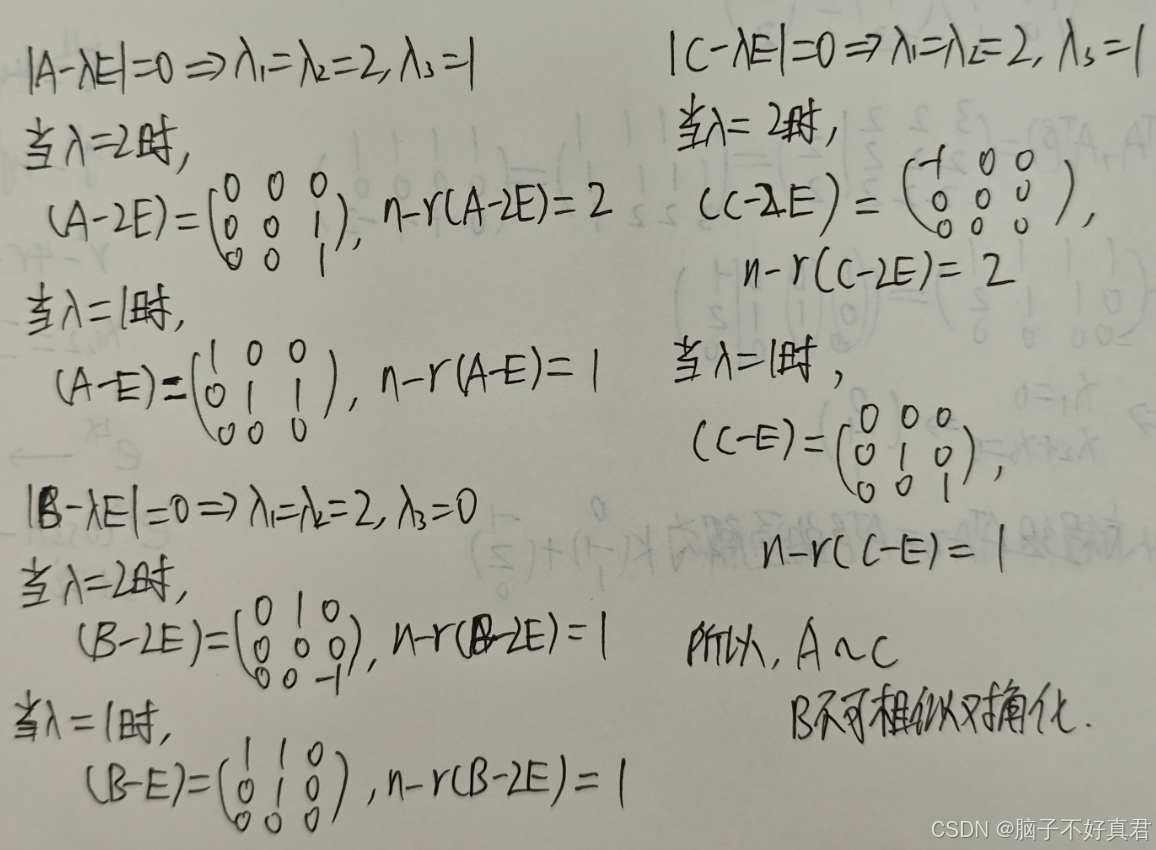 |A-λE|=0⇒λ₁=λ₂=2, λ₃=1
当λ=2时,
(A-2E)=(0 0 0
0 0 1
0 0 1), n-r(A-2E)=2
当λ=1时,
(A-E)=(1 0 0
0 1 1
0 0 0), n-r(A-E)=1
|B-λE|=0⇒λ₁=λ₂=2, λ₃=0
当λ=2时,
(B-2E)=(0 1 0
0 0 0
0 0 -1), n-r(B-2E)=1
当λ=1时,
(B-E)=(1 1 0
0 1 0
0 0 0), n-r(B-2E)=1
|C-λE|=0⇒λ₁=λ₂=2, λ₃=1
当λ=2时,
(C-2E)=(-1 0 0
0 0 0
0 0 0),
n-r(C-2E)=2
当λ=1时,
(C-E)=(0 0 0
0 1 0
0 0 1),
n-r(C-E)=1
所以, A~C
B不可相似对角化.
CSDN @脑子不好真君